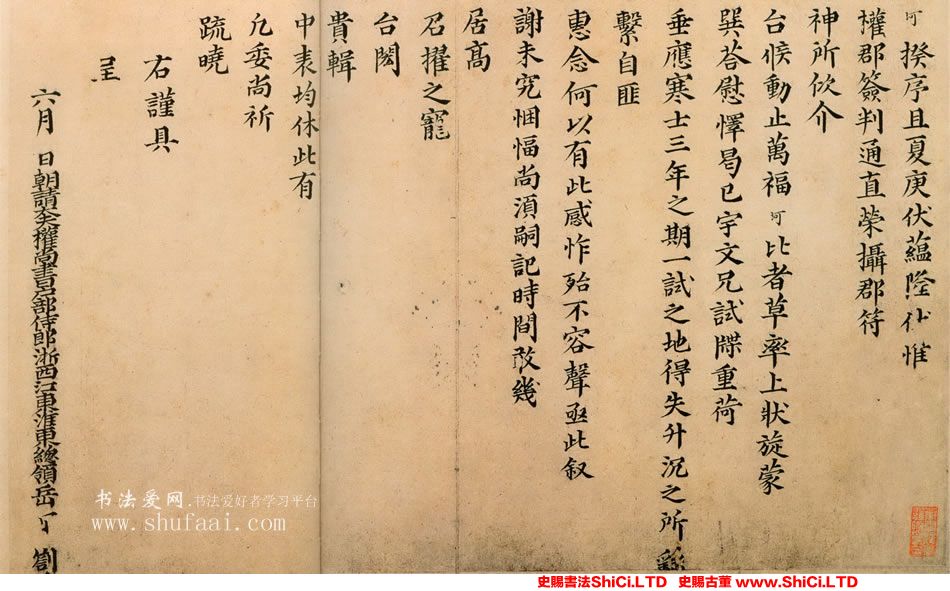 可 揆序且夏庚伏蘊隆 惟
權郡簽判通直榮攝郡符
神所攸介
台候動止萬福 可 比者草率上狀旋蒙
巽荅慰懌曷已宇文兄試牒重荷
垂應寒士三年之期一試之地得失升沉之所
繫自匪
惠念何以有此感怍殆不容聲亟此叙
謝未究悃愊尚湏嗣記時間敢幾
居高
召擢之寵
台閎
貴輯
中表均休此有
凢委尚祈
疏曉
右謹具
呈
六月 日朝請 權尚書户部侍郎浙西江東淮東總領岳 可 劄
书法爱网.书法爱好者学习平台
www.shufaai.com
史賜書法ShiCi.LTD 史賜古董 www.ShiCi.LTD